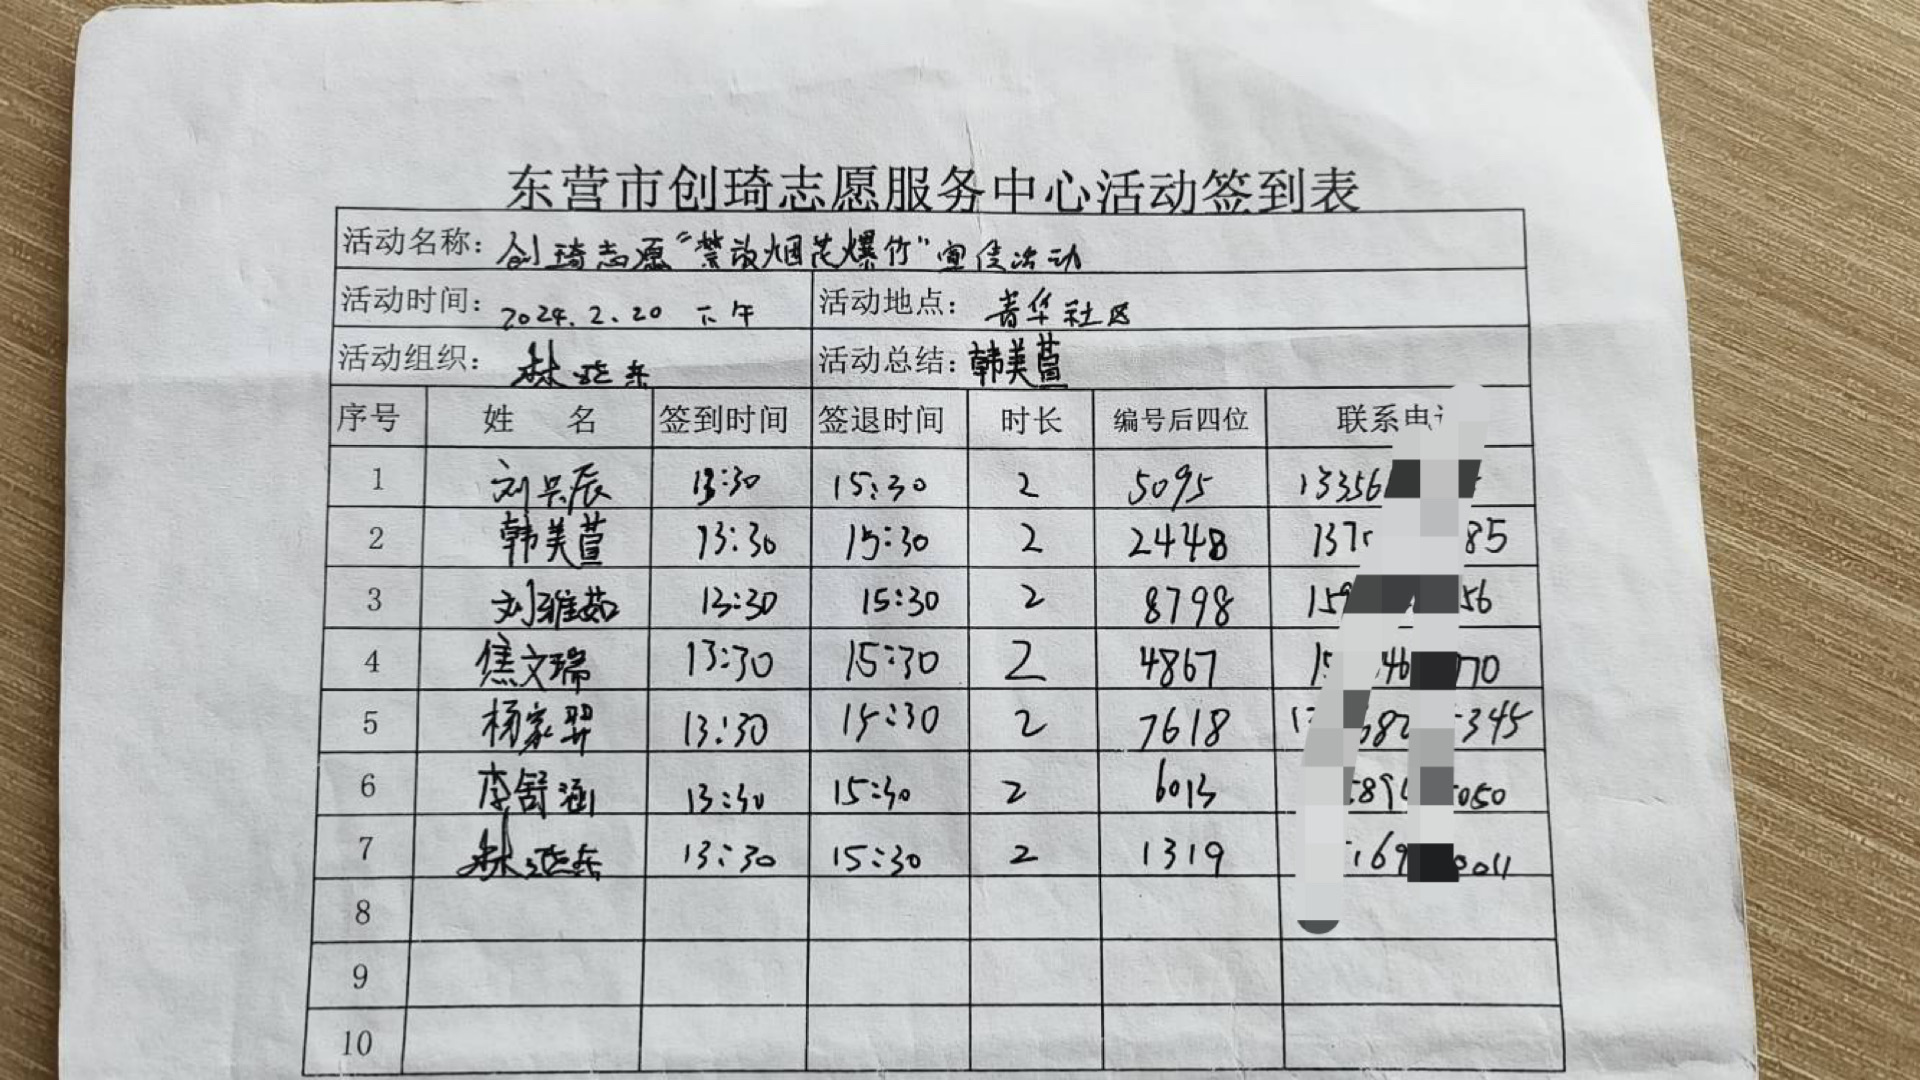 东营市创琦志愿服务中心活动签到表
活动名称：创琦志愿“禁放烟花爆竹”宣传活动
活动时间：2024.2.20 下午 活动地点：青华社区
活动组织：林 东 活动总结：韩美萱
序号 姓 名 签到时间 签退时间 时长 编号后四位 联系电
1 刘昊辰 13:30 15:30 2 5095 13356
2 韩美萱 13:30 15:30 2 2448 137 85
3 刘雅茹 13:30 15:30 2 8798 159 56
4 焦文瑞 13:30 15:30 2 4867 15 46 770
5 杨家羿 13:30 15:30 2 7618 1 682 345
6 李舒涵 13:30 15:30 2 6013 589 050
7 林 东 13:30 15:30 2 1319 169 0011
8
9
10